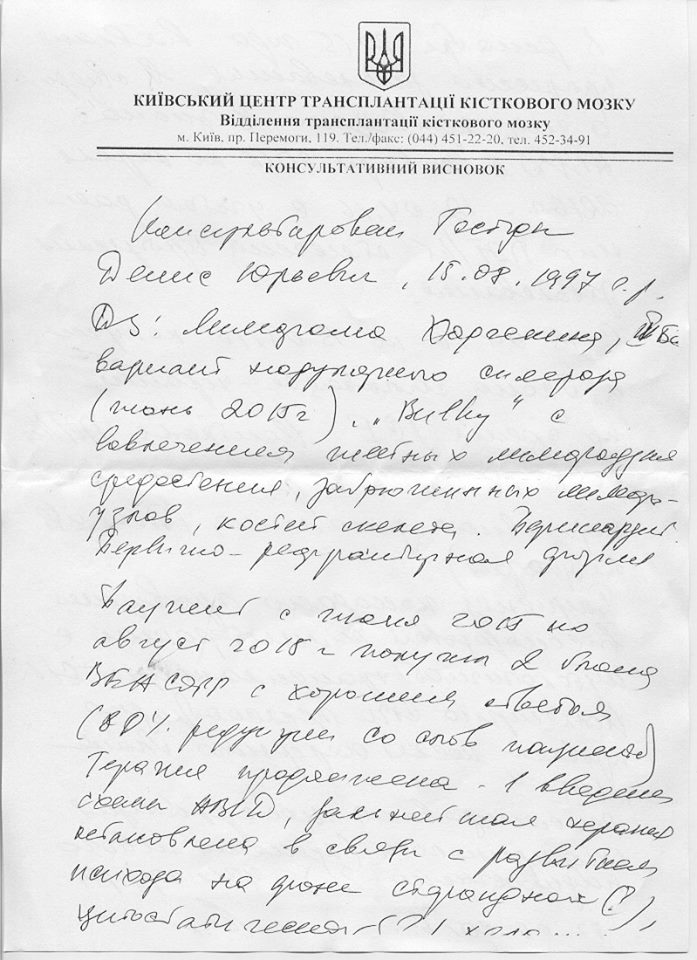 КИЇВСЬКИЙ ЦЕНТР ТРАНСПЛАНТАЦІЇ КІСТКОВОГО МОЗКУ
Відділення трансплантації кісткового мозку
м. Київ, пр. Перемоги, 119. Тел./факс: (044) 451-22-20, тел. 452-34-91
КОНСУЛЬТАТИВНИЙ ВИСНОВОК
Консультирован
Денис Юрьевич, 15.08.1997 г.р.
Ds: Лимфома Ходжкина,
вариант нодулярного склероза
(июнь 2015 г), „Bulky" с
вовлечением лимфоузлов
средостения, забрюшинных лимфо-
узлов, костей скелета.
Первично-рефрактерная форма
Пациент с июня 2015 по
август 2015 г получил 2 блока
с хорошим ответом
(80% редукции со слов пациента)
Терапия продолжена - 1 введение
схемы ABVD, дальнейшая терапия
остановлена в связи с развитием
психоза на фоне (?),
(?)